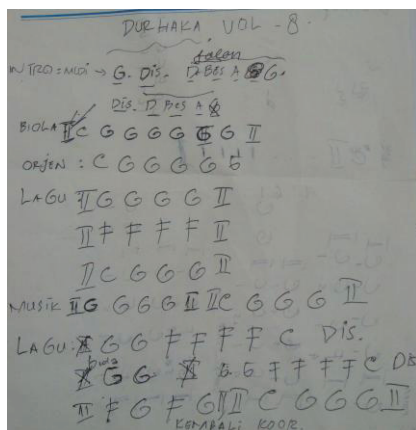 DURHAKA VOL - 8.
INTRO = MUDI → G. DIS. D BES A G.
DIS. D BES A
BIOLA II C G G G G G G II
ORJEN : C G G G G G
LAGU II G G G G II
II F F F F II
II C G G G II
MUSIK II G G G G II II C G G G II
LAGU : G G F F F F C DIS.
G G G G F F F F C DIS
II F G F G II II C G G G II
KEMBALI KOOR.